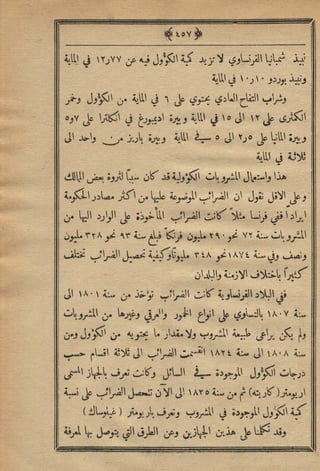 ﴿ ٤٥٧ ﴾
نبيذ شمبانيا الفرنساوي لا تزيد كمية الكؤول فيه عن ١٢٫٧٧ في الماية
ونبيذ بوردو ١٠٫١٠ في الماية
وشراب التفاح العادي يحتوي على ٦ في الماية من الكؤول وخمر
الكمثرى على ١٢ الى ١٥ في الماية وبيرة اديمبورغ في انكلترا على ٥٫٧
وبيرة المانيا على ٣٫٥ الى ٥ في الماية وبيرة باريز من واحد الى
ثلاثة في الماية
هذا واستعمال المشروبات الكؤولية قد كان سببًا لثروة بعض الممالك
وعلى الاقل نقول ان الضرائب الموضوعة عليها من اكثر مصادر الحكومة
ايرادا ففي فرنسا مثلا كانت الضرائب المأخوذة على الوارد اليها من
المشروبات سنة ٧٢ نحو ٢٩٠ مليون فرنكا فبلغ سنة ٩٣ نحو ٣٢٨ مليون
ونصف وفي سنة ١٨٧٤ نحو ٣٤٨ مليونا وكيفية تحصيل الضرائب تختلف
كثيرا باختلاف الازمنة والبلدان
ففي البلاد الفرنساوية كانت الضرائب تؤخذ من سنة ١٨٠١ الى
سنة ١٨٠٧ بالتساوي على انواع الخمور والعرقي وغيرها من المشروبات
ولم يكن يراعى طبيعة المشروب ولا مقدار ما يحتويه من الكؤول ومن
سنة ١٨٠٨ الى سنة ١٨٢٤ انقسمت الضرائب الى ثلاثة اقسام حسب
درجات الكؤول الموجودة في السائل وكانت تعرف بالجهاز المسمى
اريومتر (كارتيه) ثم من سنة ١٨٢٥ الى الآن تتحصل الضرائب على نسبة
كمية الكؤول الموجودة في المشروب وتعرف باريومتر (غيلوساك)
وقد تكلمنا على هذين الجهازين وعن الطرق التي يتوصل بها لمعرفة